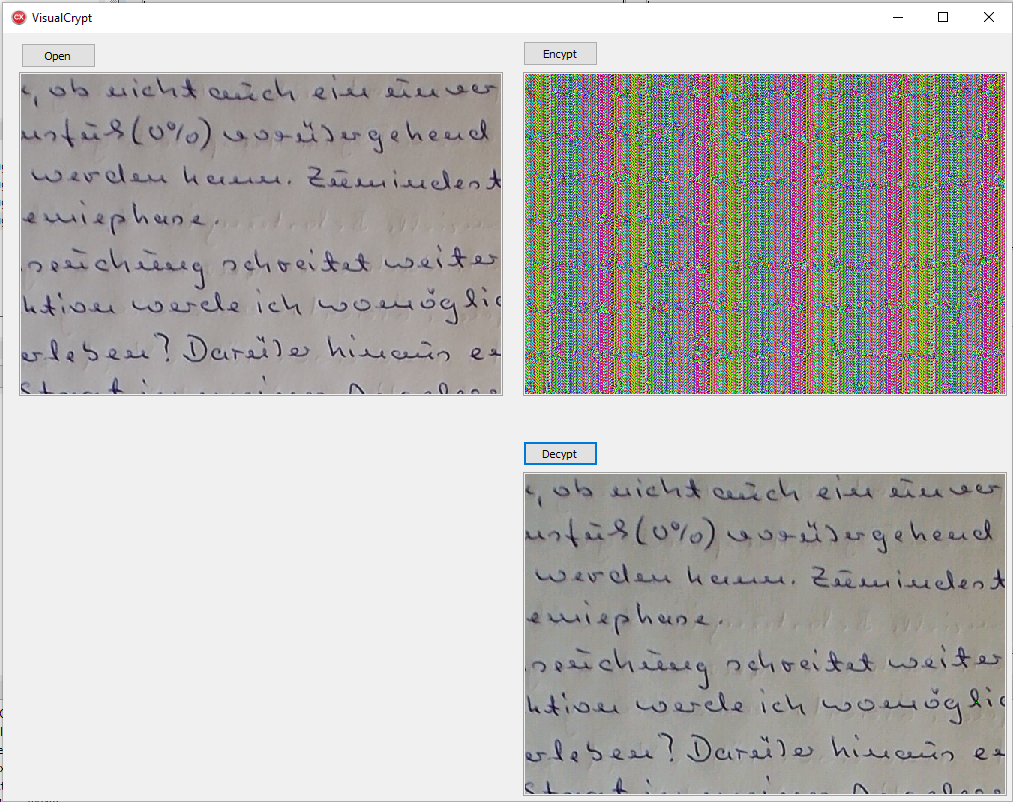 VisualCrypt
Open
, ob nicht auch ein einver
(0%) vorübergehend
werden kann. Zumindest
emiephase.
schreitet weiter
ktion werde ich womöglic
erleben? Darüber hinaus
Encrypt
Decypt
, ob nicht auch ein einver
(0%) vorübergehend
werden kann. Zumindest
emiephase.
schreitet weiter
ktion werde ich womöglic
erleben? Darüber hinaus